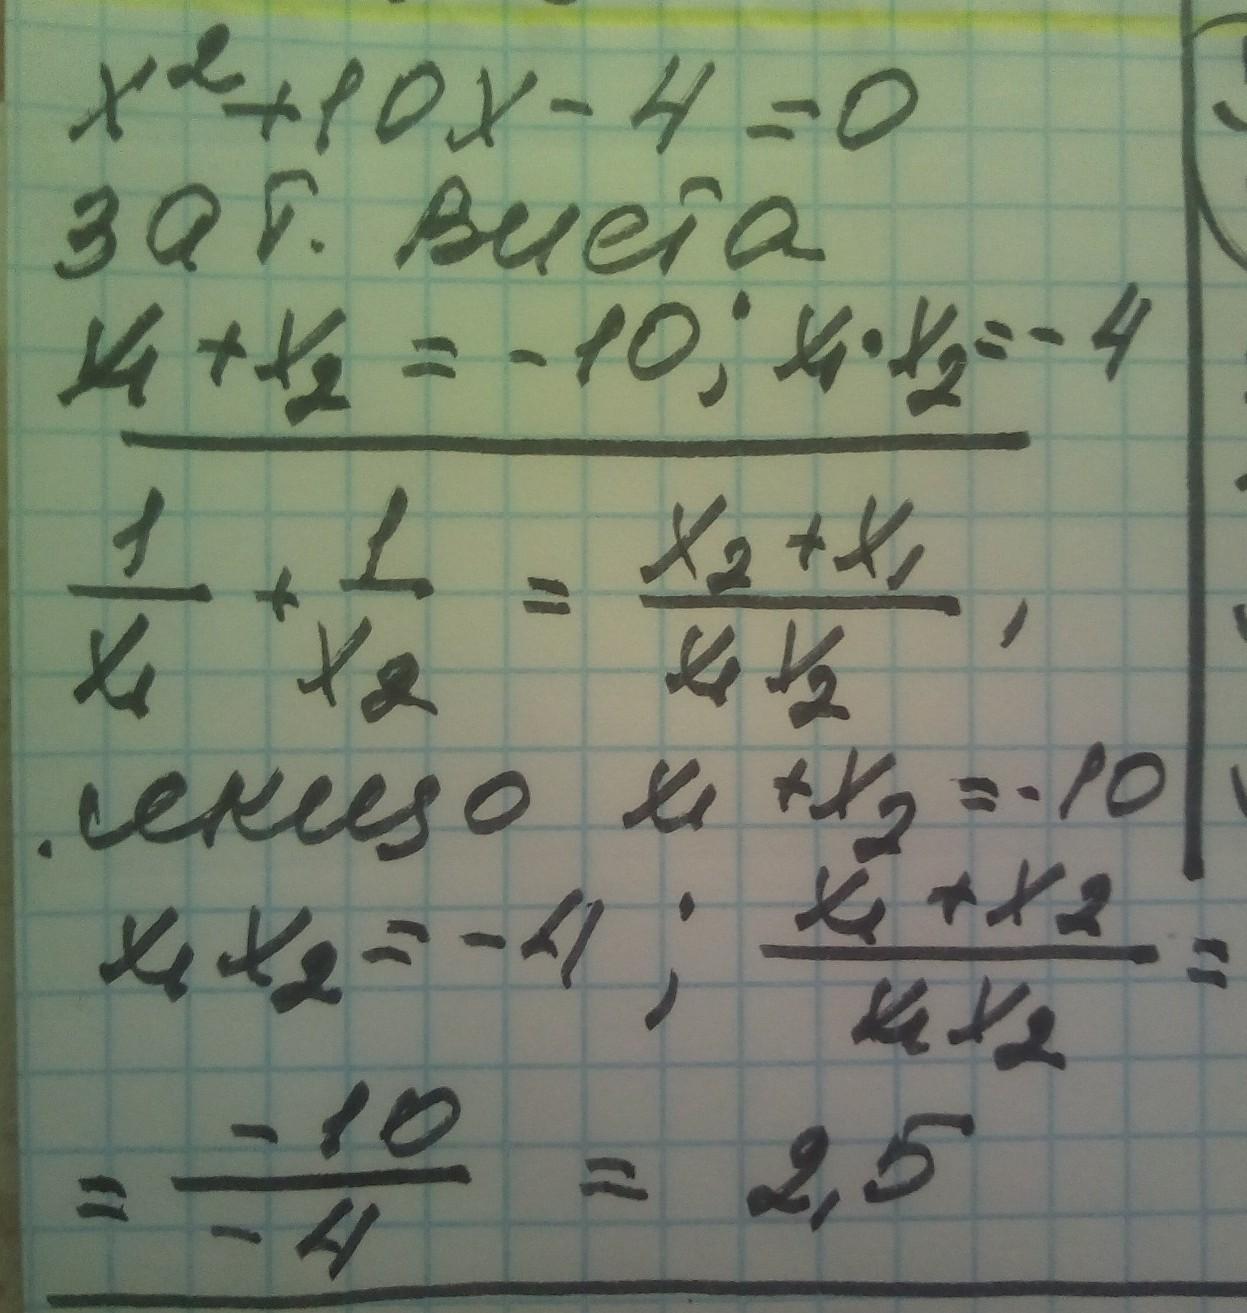 x² + 10x - 4 = 0
за т. Виета
x₁ + x₂ = -10; x₁·x₂ = -4
1/x₁ + 1/x₂ = (x₂ + x₁)/(x₁x₂),
якщо x₁ + x₂ = -10
x₁x₂ = -4; (x₁ + x₂)/(x₁x₂) =
= -10/-4 = 2,5